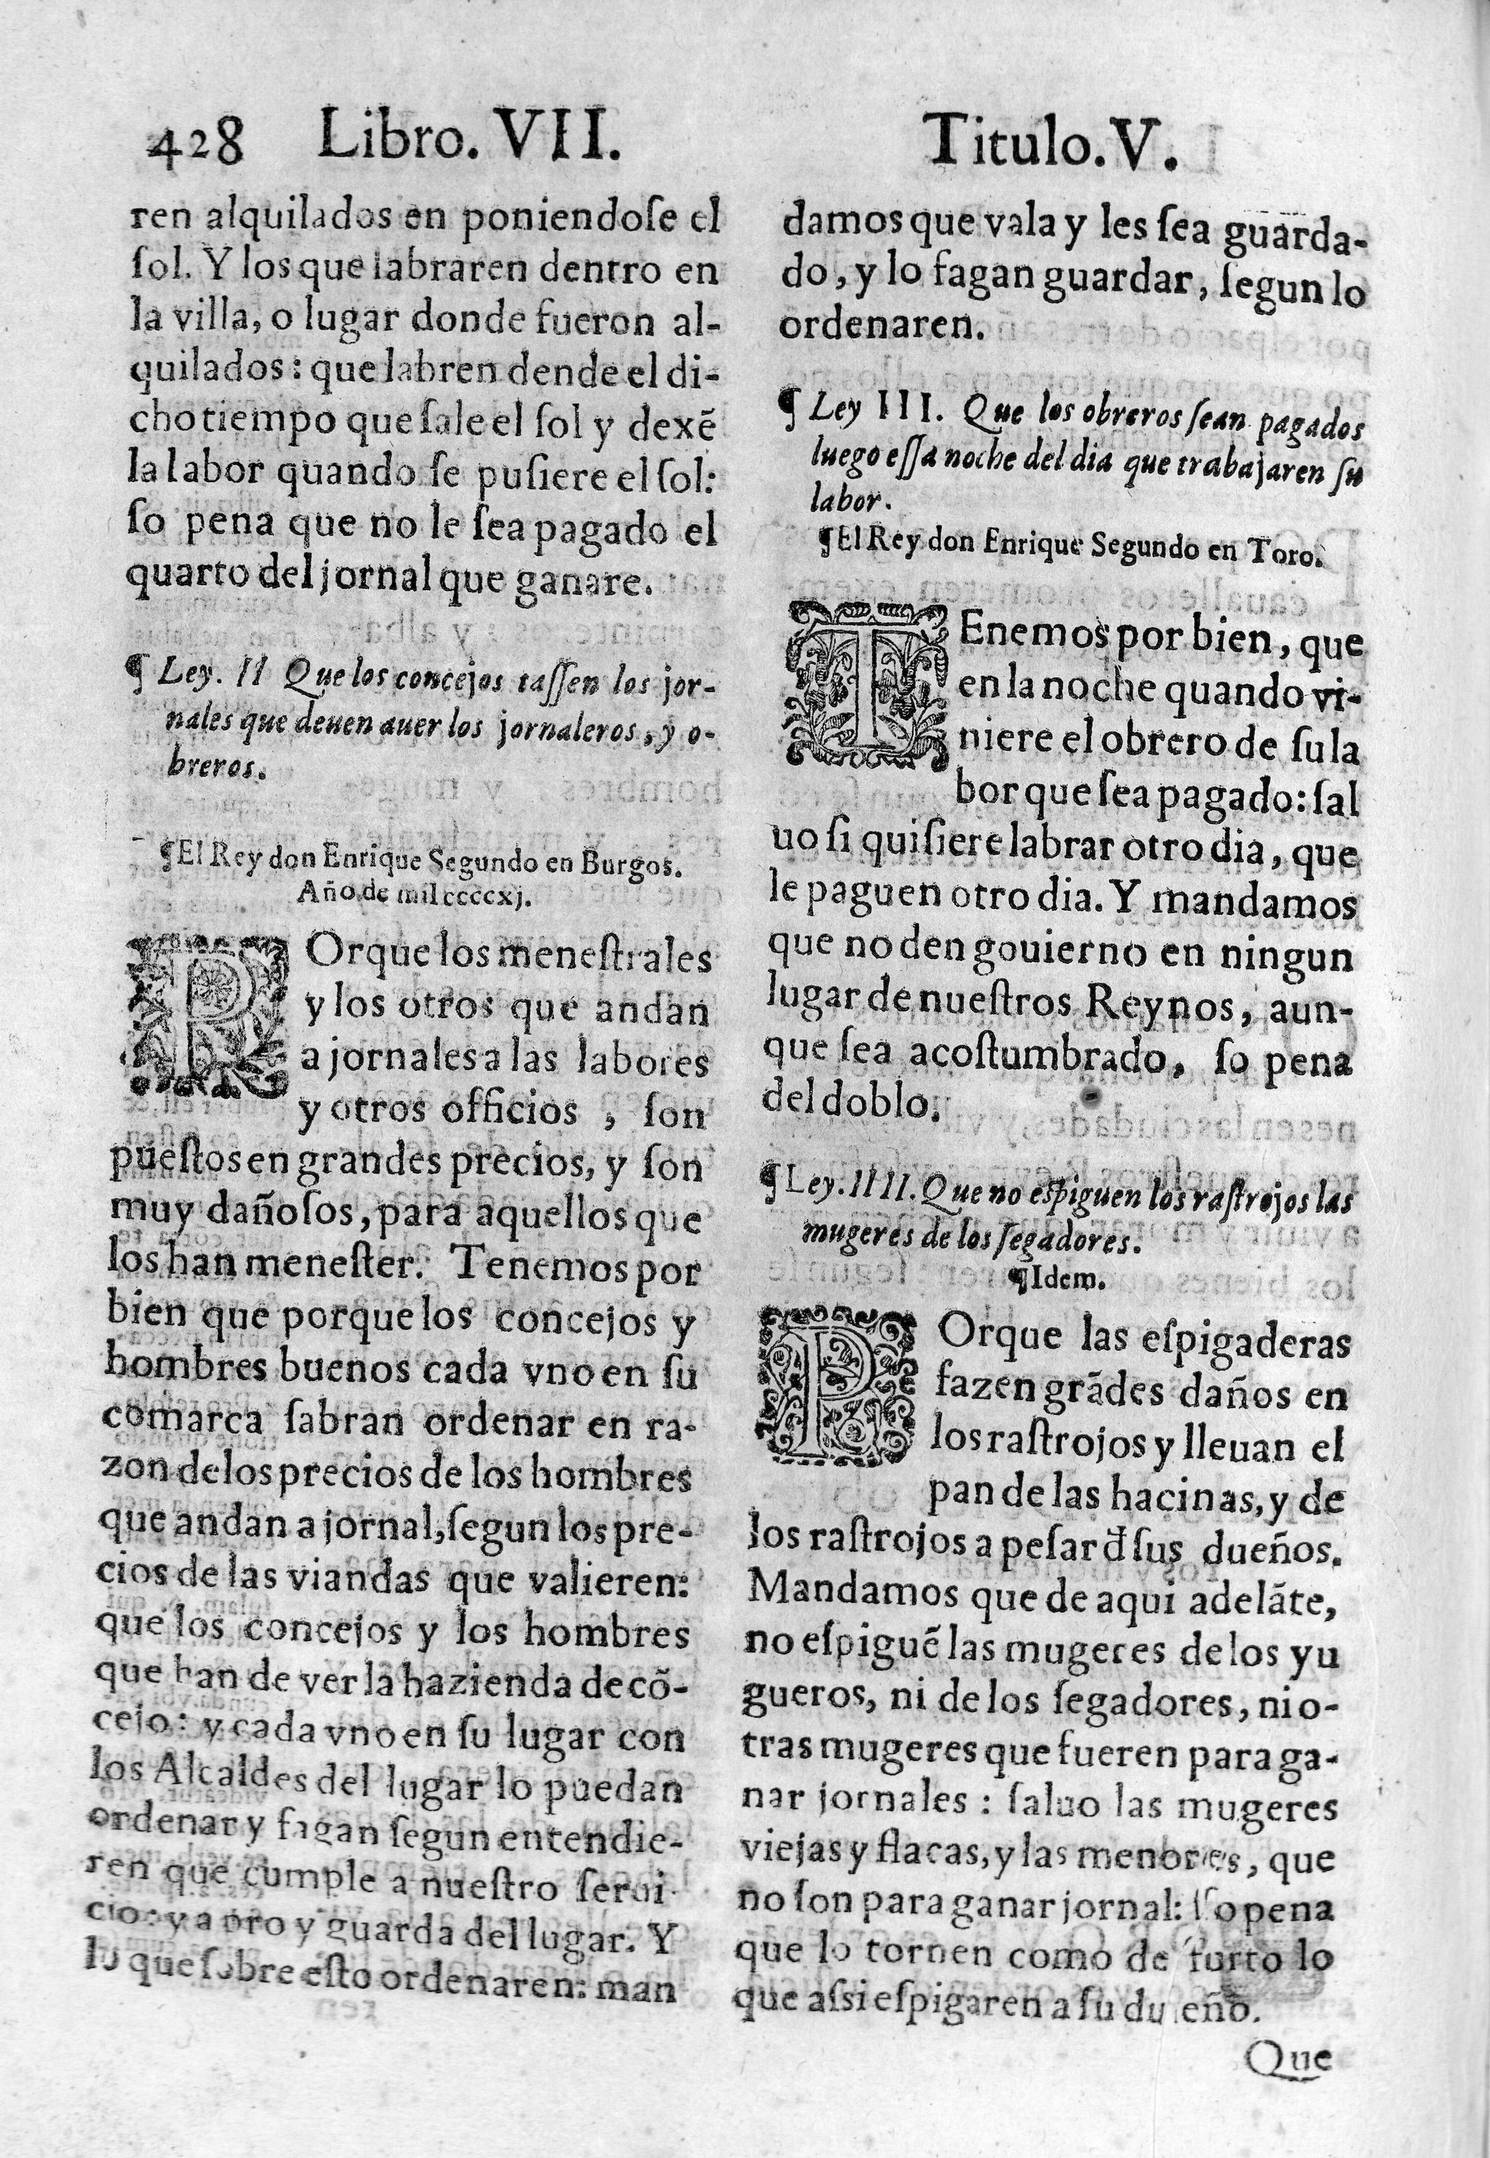 428 Libro. VII. Titulo. V.
ren alquilados en poniendoſe el
ſol. Y los que labraren dentro en
la villa, o lugar donde fueron al-
quilados: que labren dende el di-
cho tiempo que ſale el ſol y dexẽ
la labor quando ſe puſiere el ſol:
ſo pena que no le ſea pagado el
quarto del jornal que ganare.
¶ Ley. II Que los concejos taſſen los jor-
nales que deuen auer los jornaleros, y o-
breros.
¶El Rey don Enrique Segundo en Burgos.
Año de mil ccccxj.
POrque los meneſtrales
y los otros que andan
a jornales a las labores
y otros officios , ſon
pueſtos en grandes precios, y ſon
muy dañoſos, para aquellos que
los han meneſter. Tenemos por
bien que porque los concejos y
hombres buenos cada vno en ſu
comarca ſabran ordenar en ra-
zon de los precios de los hombres
que andan a jornal, ſegun los pre-
cios de las viandas que valieren:
que los concejos y los hombres
que han de ver la hazienda de cõ-
cejo: y cada vno en ſu lugar con
los Alcaldes del lugar lo puedan
ordenar y fagan ſegun entendie-
ren que cumple a nueſtro ſerui
cio: y a pro y guarda del lugar. Y
lo que ſobre eſto ordenaren: man
damos que vala y les ſea guarda-
do, y lo fagan guardar, ſegun lo
ordenaren.
¶ Ley III. Que los obreros ſean pagados
luego eſſa noche del dia que trabajaren ſu
labor.
¶El Rey don Enrique Segundo en Toro.
TEnemos por bien, que
en la noche quando vi-
niere el obrero de ſu la
bor que ſea pagado: ſal
uo ſi quiſiere labrar otro dia, que
le paguen otro dia. Y mandamos
que no den gouierno en ningun
lugar de nueſtros Reynos, aun-
que ſea acoſtumbrado, ſo pena
del doblo.
¶Ley. IIII. Que no eſpiguen los raſtrojos las
mugeres de los ſegadores.
¶Idem.
POrque las eſpigaderas
fazen grãdes daños en
los raſtrojos y lleuan el
pan de las hacinas, y de
los raſtrojos a peſar đ ſus dueños.
Mandamos que de aqui adelãte,
no eſpiguẽ las mugeres de los yu
gueros, ni de los ſegadores, ni o-
tras mugeres que fueren para ga-
nar jornales : ſaluo las mugeres
viejas y flacas, y las menores, que
no ſon para ganar jornal: ſo pena
que lo tornen como de furto lo
que aſsi eſpigaren a ſu dueño.
Que